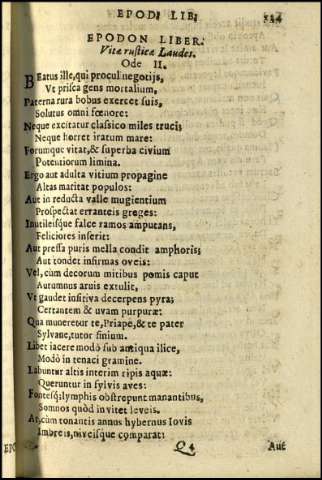 EPODI LIB:
EPODON LIBER.
Vitæ rusticæ Laudes.
Ode II.
BEatus ille, qui procul negotijs,
Vt prisca gens mortalium,
Paterna rura bobus exercet suis,
Solutus omni fœnore:
Neque excitatur classico miles truci
Neque horret iratum mare:
Forumque vitat, & superba civium
Potentiorum limina.
Ergo aut adulta vitium propagine
Altas maritat populos:
Aut in reducta valle mugientium
Prospectat erranteis greges:
Inutileisque falce ramos amputans,
Feliciores inserit:
Aut pressa puris mella condit amphoris;
Aut tondet infirmas oveis:
Vel, cum decorum mitibus pomis caput
Autumnus arvis extulit,
Vt gaudet insitiva decerpens pyra;
Certantem & uvam purpuræ:
Qua muneretur te, Priape, & te pater
Sylvane, tutor finium.
Libet iacere modò sub antiqua ilice,
Modò in tenaci gramine.
Labuntur altis interim ripis aquæ:
Queruntur in sylvis aves:
Fontesq; lymphis obstrepunt manantibus,
Somnos quòd invitet leveis.
At, cùm tonantis annus hybernus Iovis
Imbreis, niveisque comparat:
Q 4
Aut